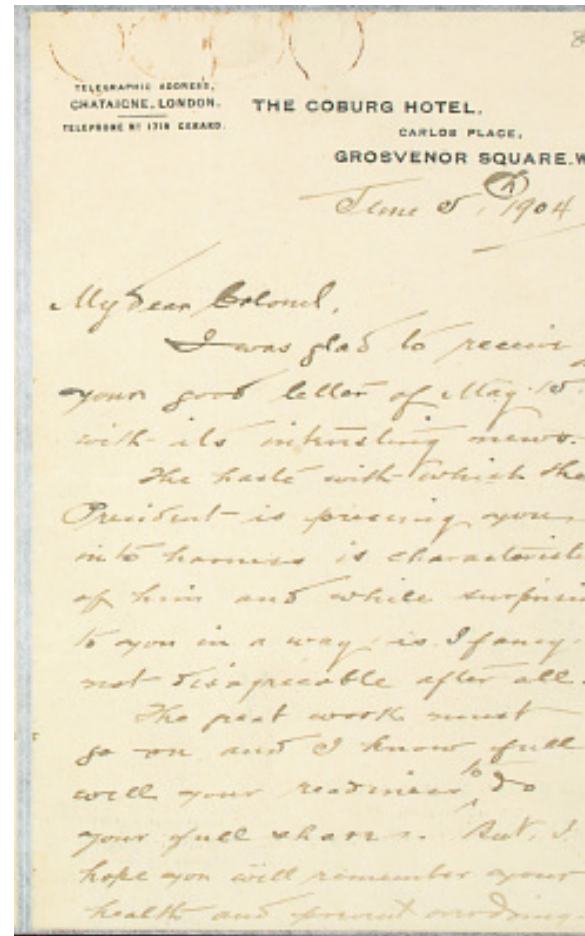 TELEGRAPHIC ADDRESS,
CHATAIGNE, LONDON.
TELEPHONE Nº 1718 GERARD.
THE COBURG HOTEL,
CARLOS PLACE,
GROSVENOR SQUARE. W
June 5, 1904
My dear Colonel,
I was glad to receive
your good letter of May 15
with its interesting news.
The haste with which the
President is pressing you
into harness is characteristi
of him and while surprisin
to you in a way, is I fancy
not disagreeable after all.
The great work must
go on and I know full
well your readiness to do
your full share. But, I
hope you will remember your
health and prevent overdoing